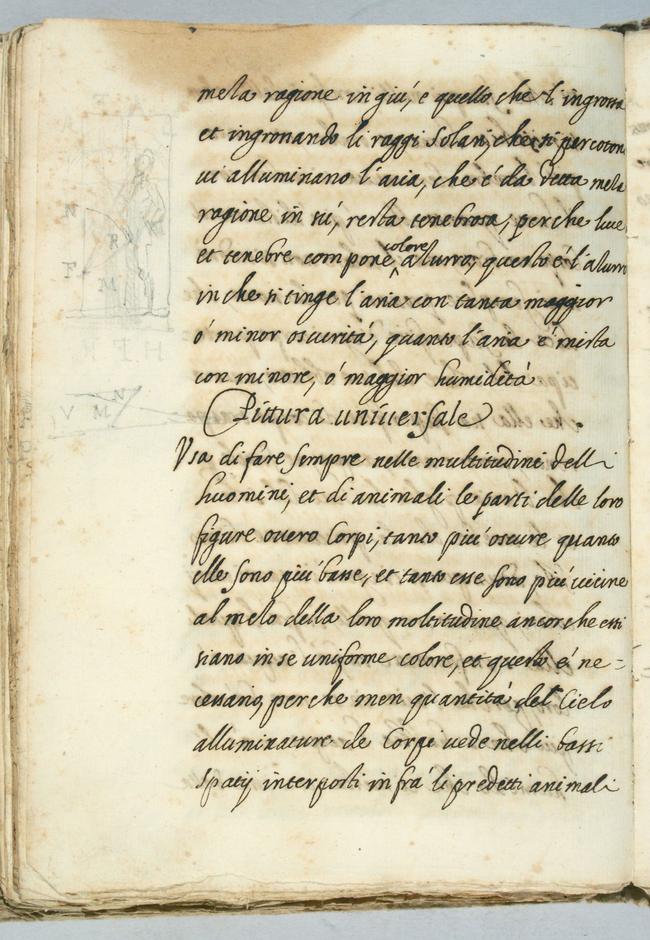 meza ragione in giù, e quello che l'ingrossa
et ingronando li raggi Solari, che si percoton
vi alluminano l'aria, che é da detta meza
ragione in sú, resta tenebrosa, perche luce
et tenebre compone colore azurro, questo é l'azurro
in che si tinge l'aria con tanta maggior
ó minor oscuritá, quanto l'aria é mista
con minore, ó maggior humiditá
Pittura universale
Usa di fare sempre nelle multitudini delli
huomini, et di animali le parti delle loro
figure overo Corpi, tanto piú oscure quanto
elle sono piú basse, et tanto esse sono piú vicine
al mezo della loro moltitudine ancorche essi
siano in se uniforme colore, et questo é ne=
cessario, perche men quantitá del Cielo
alluminature de Corpi vede nelli bassi
spatij interposti infrá li predetti animali
N
R
F
M
H F
N
V M